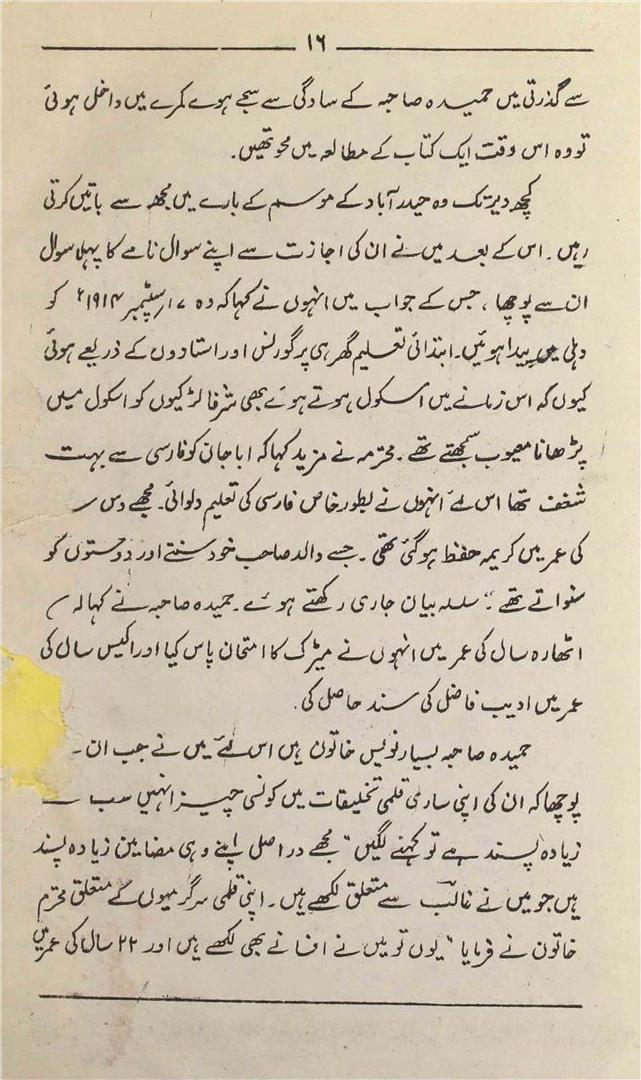 ۱۶
سے گذرتی میں حمیدہ صاحبہ کے سادگی سے سجے ہوے کمرے میں داخل ہوئی
تو وہ اس وقت ایک کتاب کے مطالعہ میں محو تھیں.
کچھ دیر تک وہ حیدرآباد کے موسم کے بارے میں مجھ سے باتیں کرتی
رہیں۔ اس کے بعد میں نے ان کی اجازت سے اپنے سوال نامے کا پہلا سوال
ان سے پوچھا، جس کے جواب میں انہوں نے کہا کہ وہ ۷ار سپٹمبر ۱۹۱۴ء کو
دہلی میں پیدا ہوئیں۔ ابتدائی تعلیم گھر ہی پر گورنس اور استادوں کے ذریعے ہوئی
کیوں کہ اس زمانے میں اسکول ہوتے ہوئے بھی شرفا لڑکیوں کو اسکول میں
پڑھانا معیوب سمجھتے تھے۔ محترمہ نے مزید کہا کہ ابا جان کو فارسی سے بہت
شغف تھا اس لئے انہوں نے بطور خاص فارسی کی تعلیم دلوائی۔ مجھے دس
کی عمر میں کریمہ حفظ ہو گئی تھی۔ جسے والد صاحب خود سنتے اور دوستوں کو
سنواتے تھے۔" سلسلہ بیان جاری رکھتے ہوئے۔ حمیدہ صاحبہ نے کہا کہ
اٹھارہ سال کی عمر میں انہوں نے میٹرک کا امتحان پاس کیا اور اکیس سال کی
عمر میں ادیب فاضل کی سند حاصل کی.
حمیدہ صاحبہ بسیار نویس خاتون ہیں اس لئے میں نے جب ان
پوچھا کہ ان کی اپنی ساری قلمی تخلیقات میں کونسی چیز انہیں سب سے
زیادہ پسند ہے تو کہنے لگیں "مجھے در اصل اپنے وہی مضامین زیادہ پسند
ہیں جو میں نے غالب سے متعلق لکھے ہیں۔ اپنی قلمی سرگرمیوں کے متعلق محترم
خاتون نے فرمایا "یوں تو میں نے افسانے بھی لکھے ہیں اور ۲۲ سال کی عمر میں